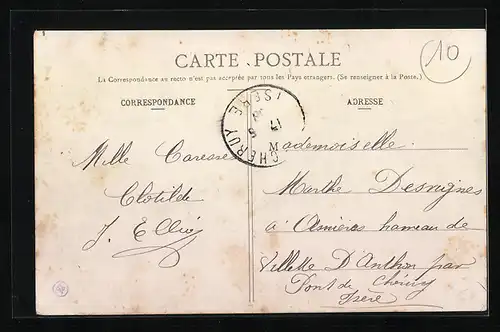 10
CARTE POSTALE
La Correspondance au recto n'est pas acceptée par tous les Pays étrangers. (Se renseigner à la Poste.)
CORRESPONDANCE
ADRESSE
CHERUY
ISERE
Mille Caresses
Clotilde
Mademoiselle
Marthe Desvignes
à Asnières hameau de
Villette D'Anthon par
Pont de Chéruy
Isère